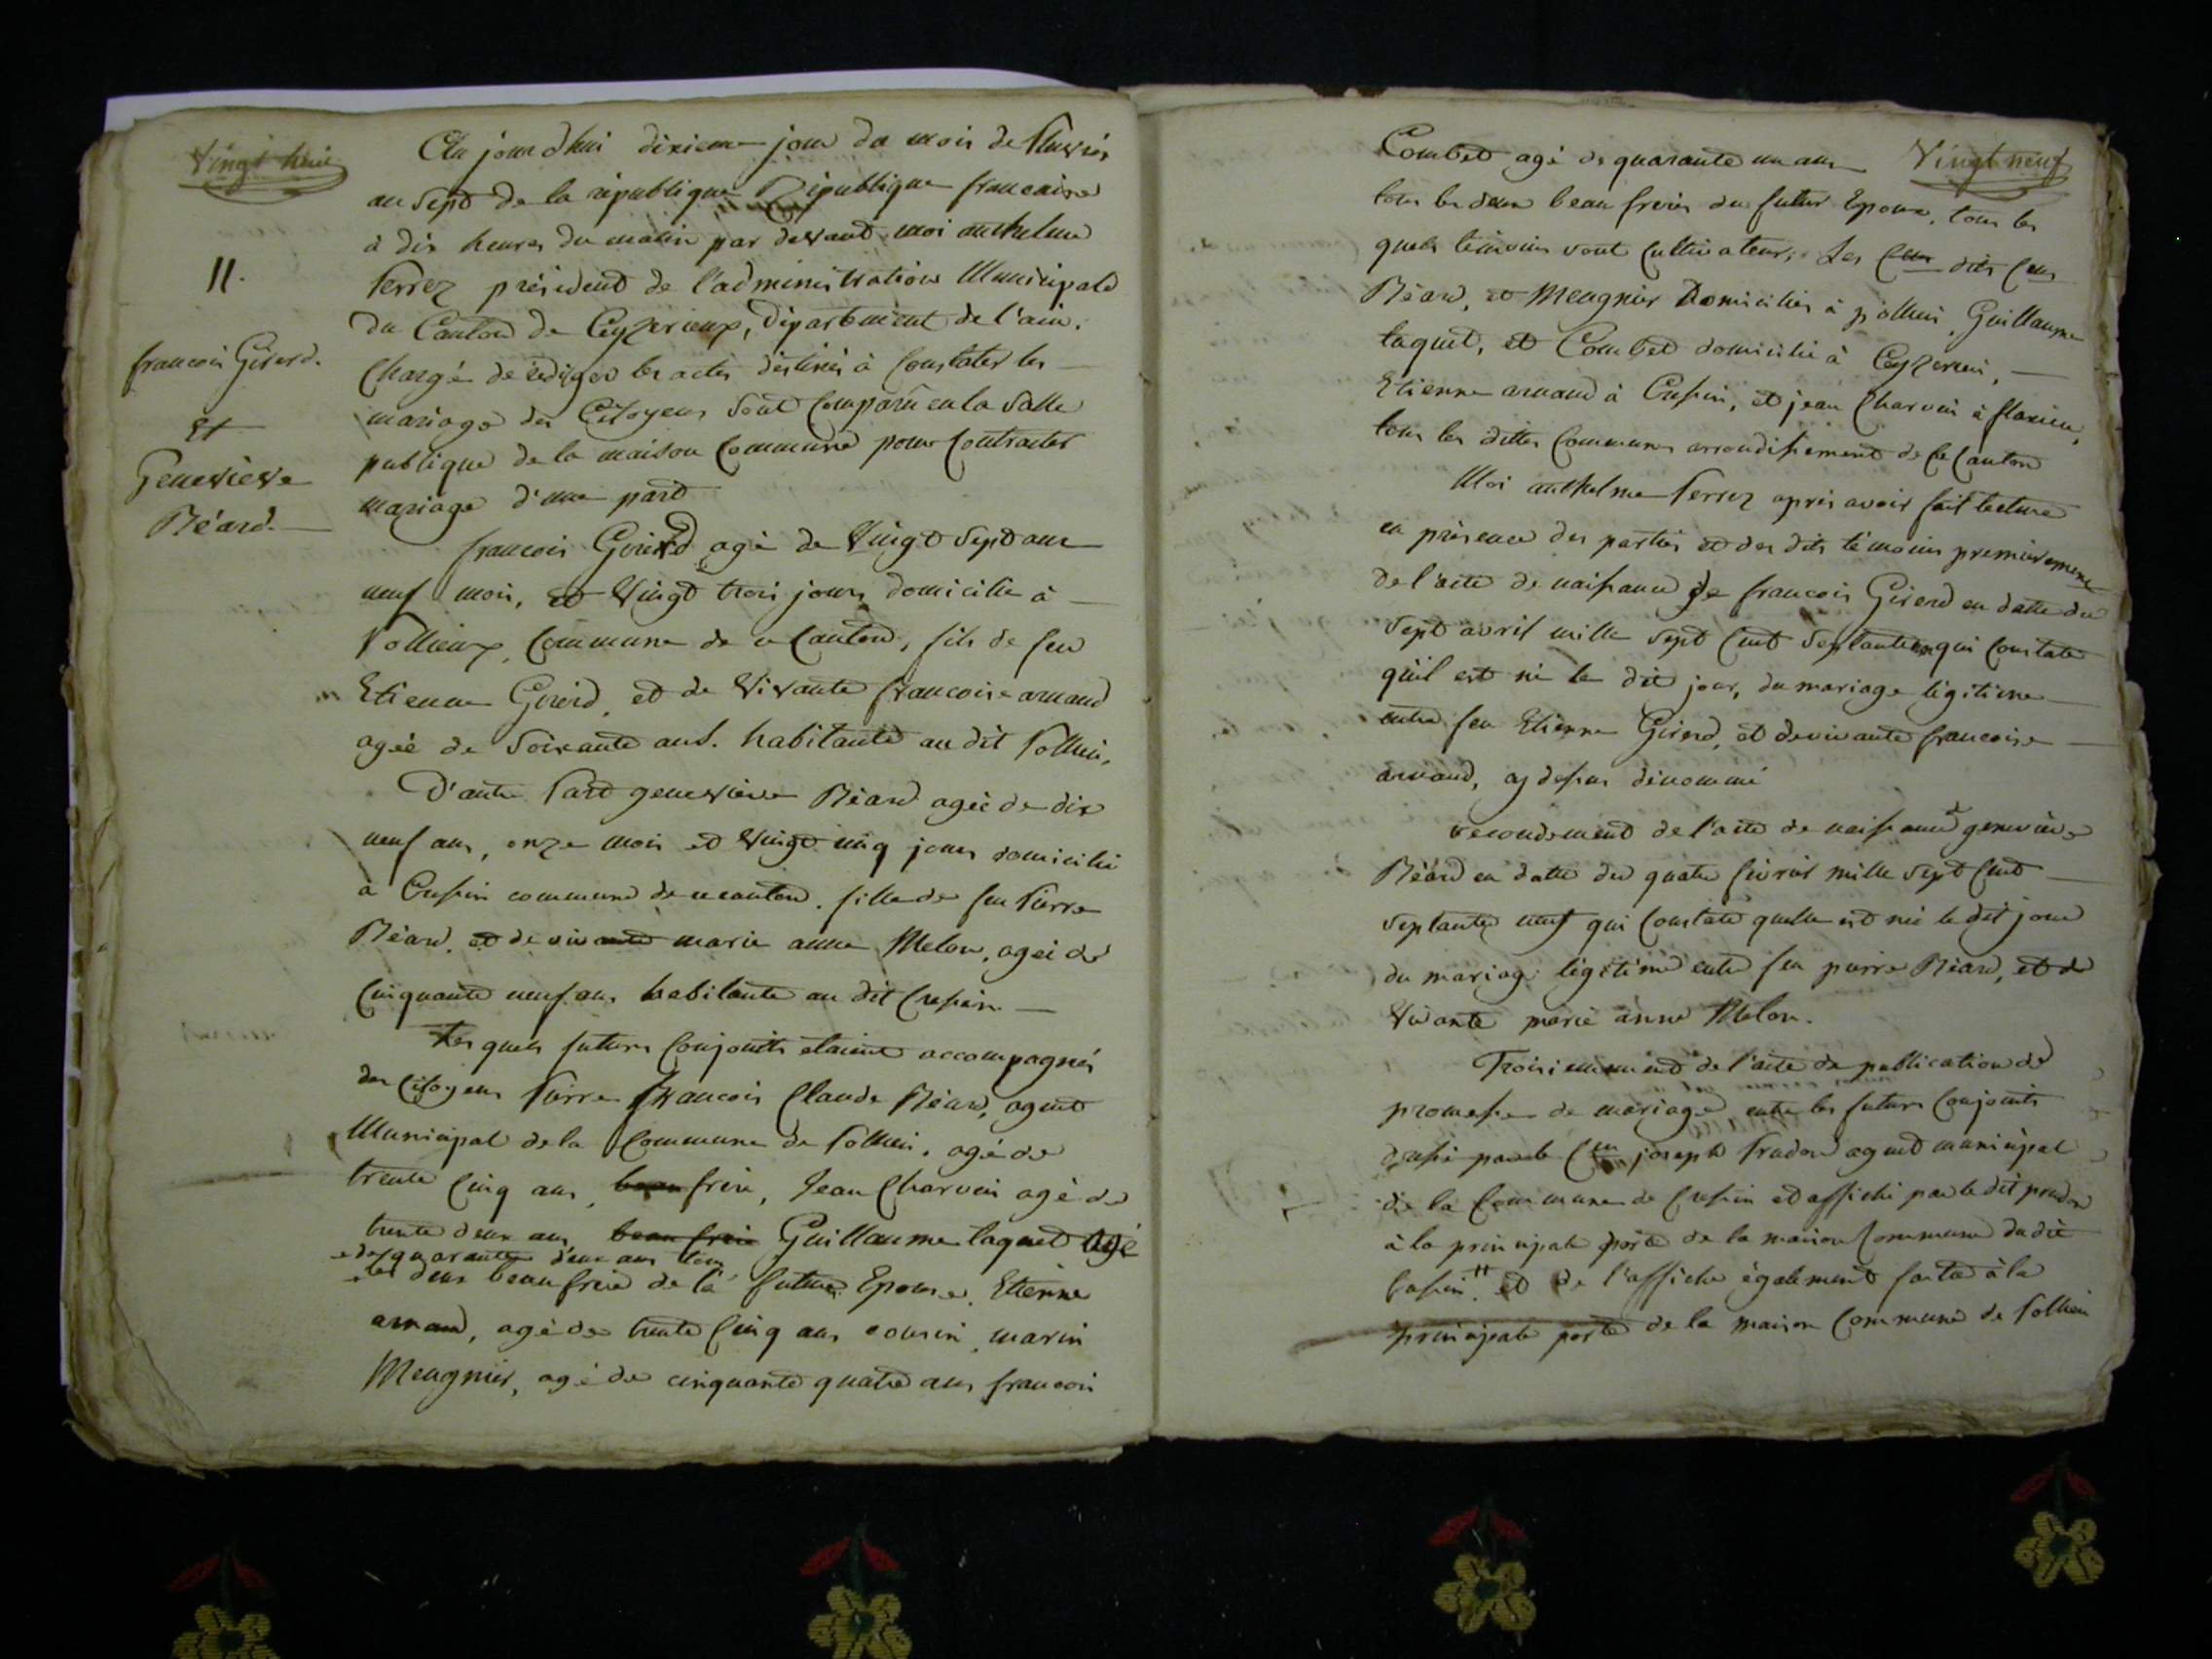 Vingt huit
Au jourdhui dixieme jour du mois de Pluviose
an Sept de la république République francaise
à dix heures du matin par devant moi anthelme
Ferrez président de l'administration Municipale
du Canton de Ceyzerieux, Département de l'ain.
Chargé de rédiger les actes destinés à Constater les
mariage des Citoyens Sont Comparu en la Salle
publique de la maison Commune pour Contracter
mariage d'une part
11.
francois Girerd.
Et
Genevieve
Béard.
francois Girerd agé de Vingt Sept ans
neuf mois, et Vingt trois jours domicilie à
Pollieux, Commune de ce Canton, fils de feu
Etienne Girerd, et de Vivante francoise arnaud
agée de Soixante ans. habitante au dit Pollieu,
D'autre Part genevieve Béard agée de dix
neuf ans, onze mois et Vingt cinq jours domicilié
à Cressin commune de ce canton. fille de feu Pierre
Béard. et de vivante marie anne Melon, agée de
Cinquante neuf ans habitante au dit Cressin
Les quels futurs Conjoints étaient accompagnés
des Citoyens Pierre francois Claude Béard, agent
Municipal de la Commune de Pollieu, agé de
trente Cinq ans, beau frere, Jean Charvin agé de
trente deux ans, beau frere Guillaume laquet agé
de quarante deux ans tous
les deux beau frere de la future Epouse, Etienne
arnaud, agé de trente Cinq ans cousin, marin
Meugnier, agé de cinquante quatre ans francois
Vingt neuf
Combet agé de quarante un ans
tous les deux beau freres du futur Epoux, tous les
quels témoins sont Cultivateur; Les Cens dits Cens
Béard, et Meugnier Domiciliés à pollieu, Guillaume
laquet, et Combet domicilié à Ceyzerieu,
Etienne arnaud à Cressin, et jean Charvin à flaxieu,
tous les dittes Communes arrondissement de ce Canton
Moi anthelme Ferrez après avoir fait lecture
en présence des parties et des dits témoins premierement
de l'acte de naissance de francois Girerd en datte du
Sept avril mille Sept Cent Septante un qui Constate
qu'il est né le dit jour, du mariage légitime
entre feu Etienne Girerd, et de vivante francoise
arnaud, cy dessus dénommé
secondement de l'acte de naissance de genevieve
Béard en datte du quatre fevrier mille Sept Cent
Septante neuf qui Constate quelle est née le dit jour
du mariage légitime entre feu pierre Béard, et de
Vivante marie anne Melon.
Troisiemement de l'acte de publication de
promesse de mariage entre les futurs Conjoints
dressé par le Cen joseph Prudon agent municipal
de la Commune de Cressin et affiché par le dit prudon
à la principale porte de la maison Commune du dit
Cressin. et de l'affiche également faite à la
principale porte de la maison Commune de Pollieu